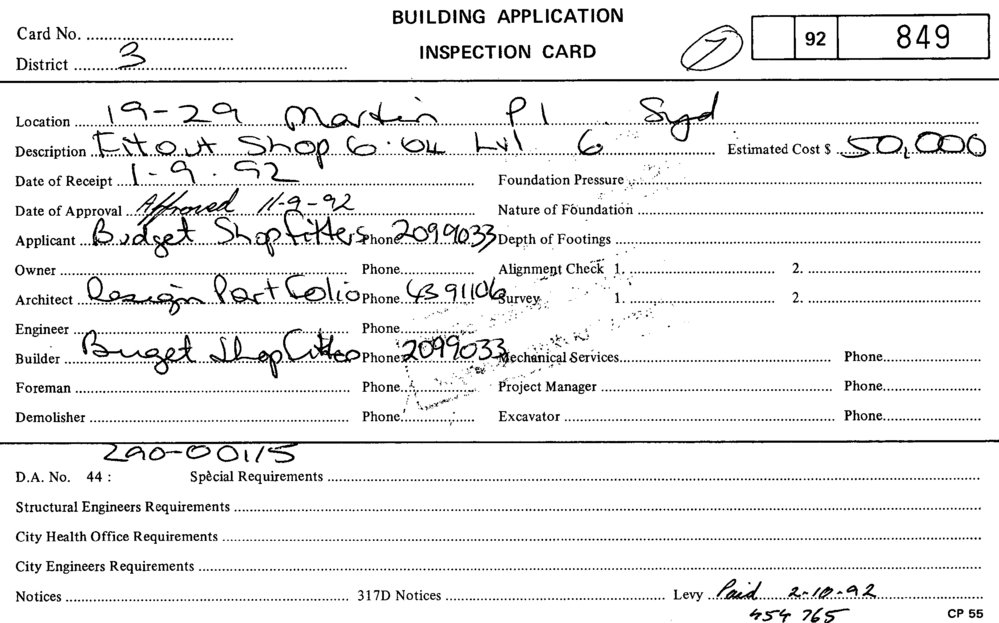 BUILDING APPLICATION
INSPECTION CARD
Card No.
District 3
7
92 849
Location 19-29 Martin Pl Syd
Description Fitout Shop 6.04 Lvl 6 Estimated Cost $ 50,000
Date of Receipt 1-9.92 Foundation Pressure
Date of Approval Approved 11-9-92 Nature of Foundation
Applicant Budget Shopfitters Phone 2099033 Depth of Footings
Owner Phone Alignment Check 1. 2.
Architect Design Portfolio Phone 4391106 Survey 1. 2.
Engineer Phone
Builder Buget Shopfitters Phone 2099033 Mechanical Services Phone
Foreman Phone Project Manager Phone
Demolisher Phone Excavator Phone
290-00115
D.A. No. 44 : Special Requirements
Structural Engineers Requirements
City Health Office Requirements
City Engineers Requirements
Notices 317D Notices Levy Paid 2-10-92
454 765
CP 55